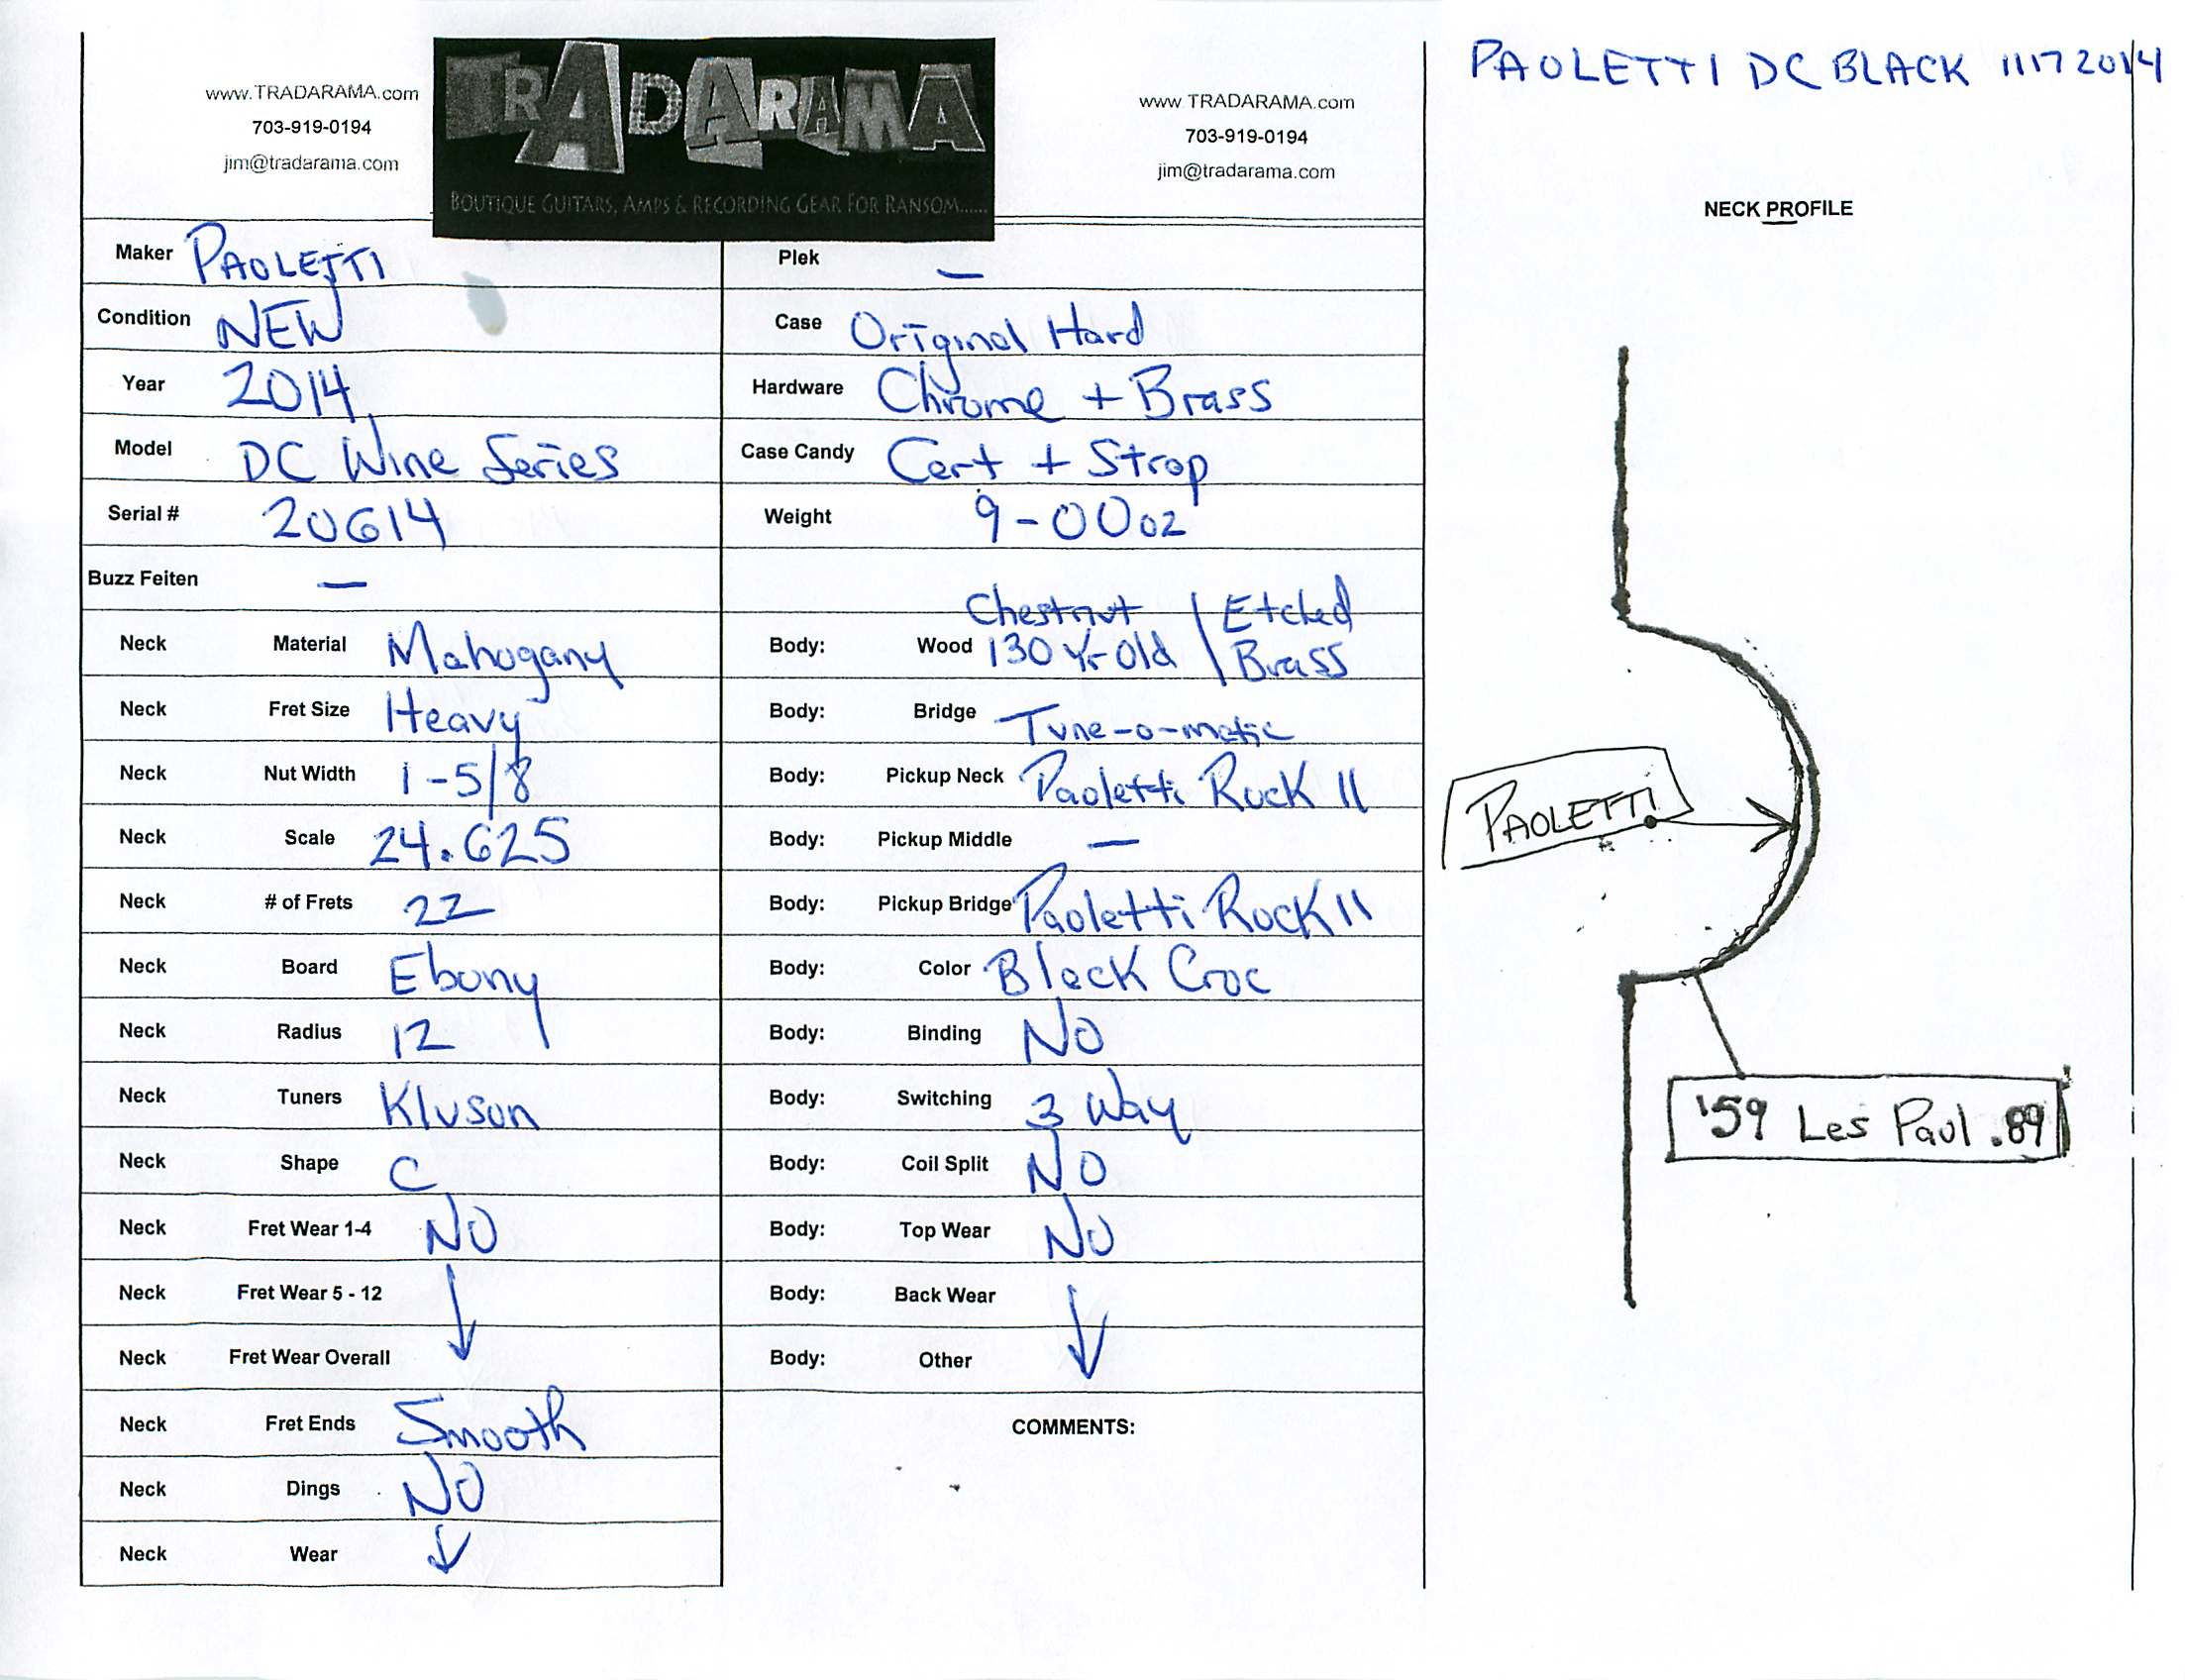 PAOLETTI DC BLACK 11172014
TRADARAMA
BOUTIQUE GUITARS, AMPS & RECORDING GEAR FOR RANSOM......
www.TRADARAMA.com
703-919-0194
jim@tradarama.com
www TRADARAMA.com
703-919-0194
jim@tradarama.com
Maker PAOLETTI
Condition NEW
Year 2014
Model DC Wine Series
Serial # 20614
Buzz Feiten —
Neck Material Mahogany
Neck Fret Size Heavy
Neck Nut Width 1-5/8
Neck Scale 24.625
Neck # of Frets 22
Neck Board Ebony
Neck Radius 12
Neck Tuners Kluson
Neck Shape C
Neck Fret Wear 1-4 NO
Neck Fret Wear 5 - 12
Neck Fret Wear Overall
Neck Fret Ends Smooth
Neck Dings NO
Neck Wear
Plek —
Case Original Hard
Hardware Chrome + Brass
Case Candy Cert + Strap
Weight 9-00oz
Chestnut / Etched
Body: Wood 130 Yr Old \ Brass
Body: Bridge Tune-o-matic
Body: Pickup Neck Paoletti Rock II
Body: Pickup Middle —
Body: Pickup Bridge Paoletti Rock II
Body: Color Black Croc
Body: Binding NO
Body: Switching 3 Way
Body: Coil Split NO
Body: Top Wear NO
Body: Back Wear
Body: Other
COMMENTS:
NECK PROFILE
PAOLETTI
'59 Les Paul .89